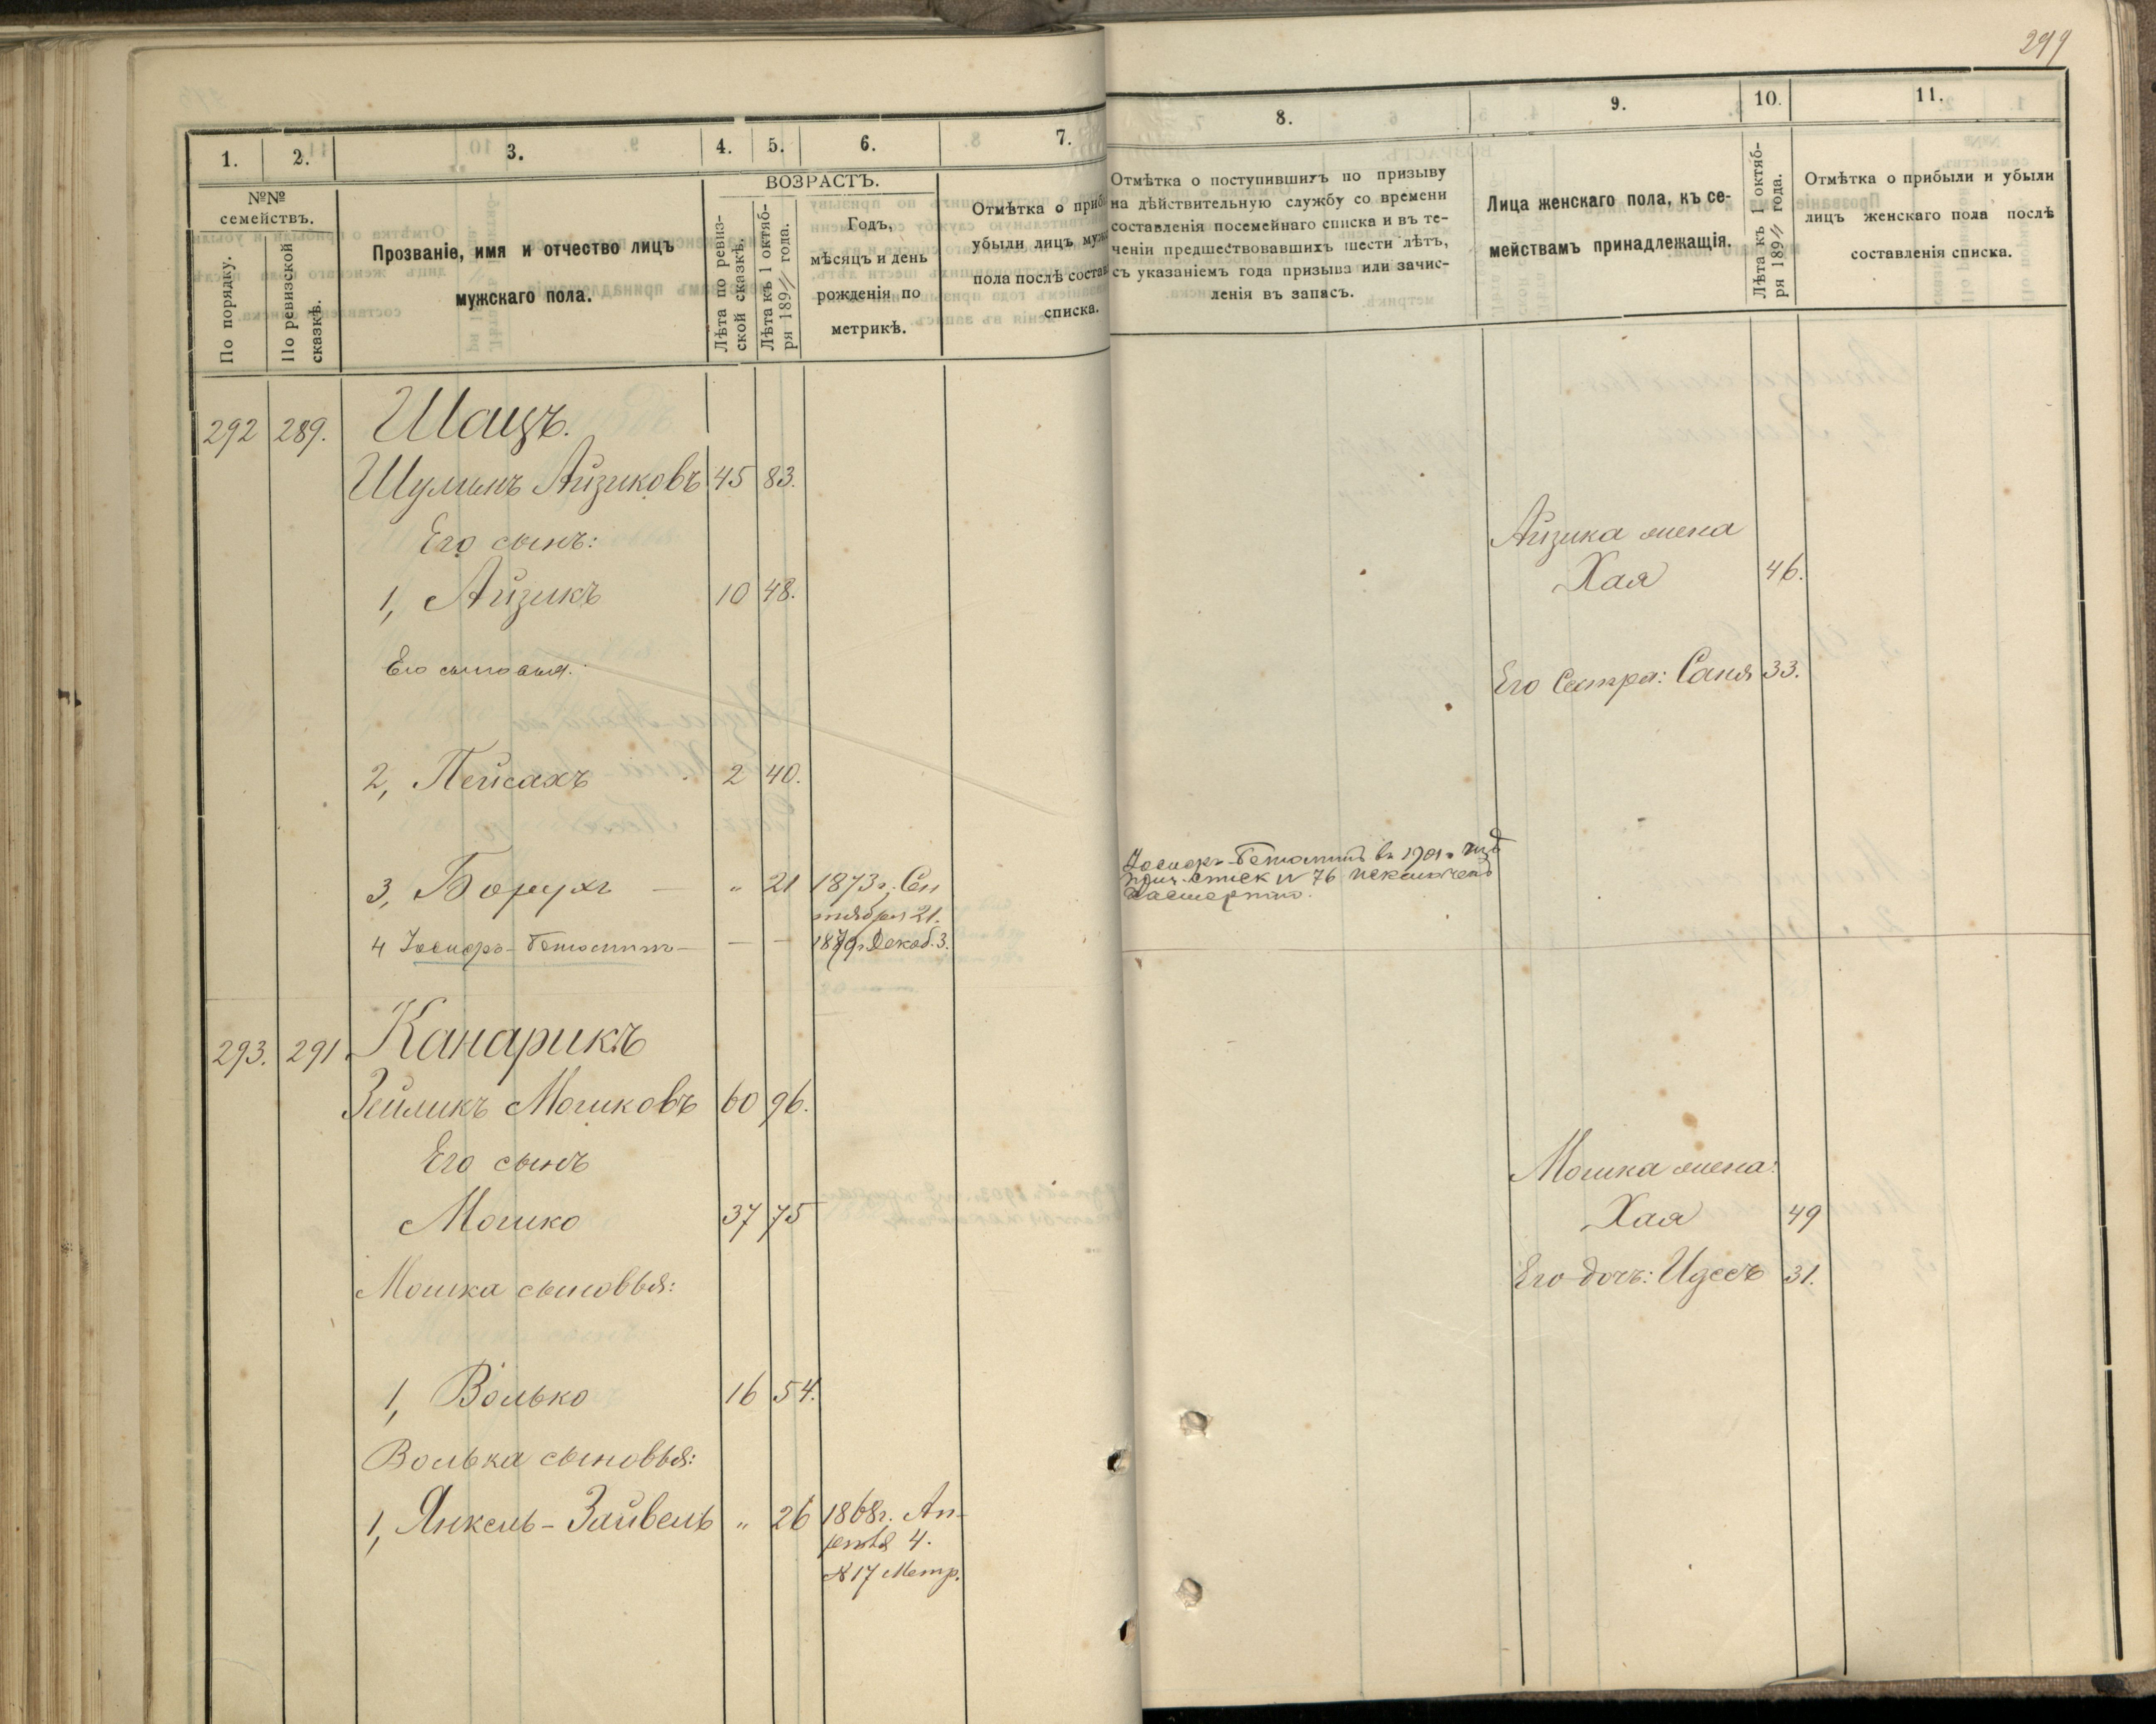 299
1. 2. 3. 4. 5. 6. 7.
№№
семействъ.
По порядку.
По ревизской
сказкѣ.
Прозваніе, имя и отчество лицъ
мужскаго пола.
ВОЗРАСТЪ.
Лѣта по ревиз-
ской сказкѣ.
Лѣта къ 1 октяб-
ря 189 года.
Годъ,
мѣсяцъ и день
рожденія по
метрикѣ.
Отмѣтка о приб
убыли лицъ муж
пола послѣ состав
списка.
292 289. Шацъ.
Шулимъ Айзиковъ 45 83.
Его сынъ:
1, Айзикъ 10 48.
Его сыновья:
2, Пейсахъ 2 40.
3, Борухъ — „ 21 1873 г. Сен
тября 21.
4 Іосифъ- — — — Декаб. 3.
293. 291. Канарикъ
Зейликъ Мошковъ 60 96.
Его сынъ
Мошко 37 75
Мошка сыновья:
1, Волько 16 54.
Волька сыновья:
1, Янкель-Зайвель „ 26 1868г. Ап-
рѣля 4.
№17 Метр.
8. 9. 10. 11.
Отмѣтка о поступившихъ по призыву
на дѣйствительную службу со времени
составленія посемейнаго списка и въ те-
ченіи предшествовавшихъ шести лѣтъ,
съ указаніемъ года призыва или зачис-
ленія въ запасъ.
Лица женскаго пола, къ се-
мействамъ принадлежащія.
Лѣта къ 1 октяб-
ря 189 года.
Отмѣтка о прибыли и убыли
лицъ женскаго пола послѣ
составленія списка.
Айзика жена
Хая 46.
Его Сестра: Саня 33.
Іосифъ- въ 1901 г.
приз. списк № 76 исключенъ
Мошка жена:
Хая 49
Его дочь: Идесъ 31.